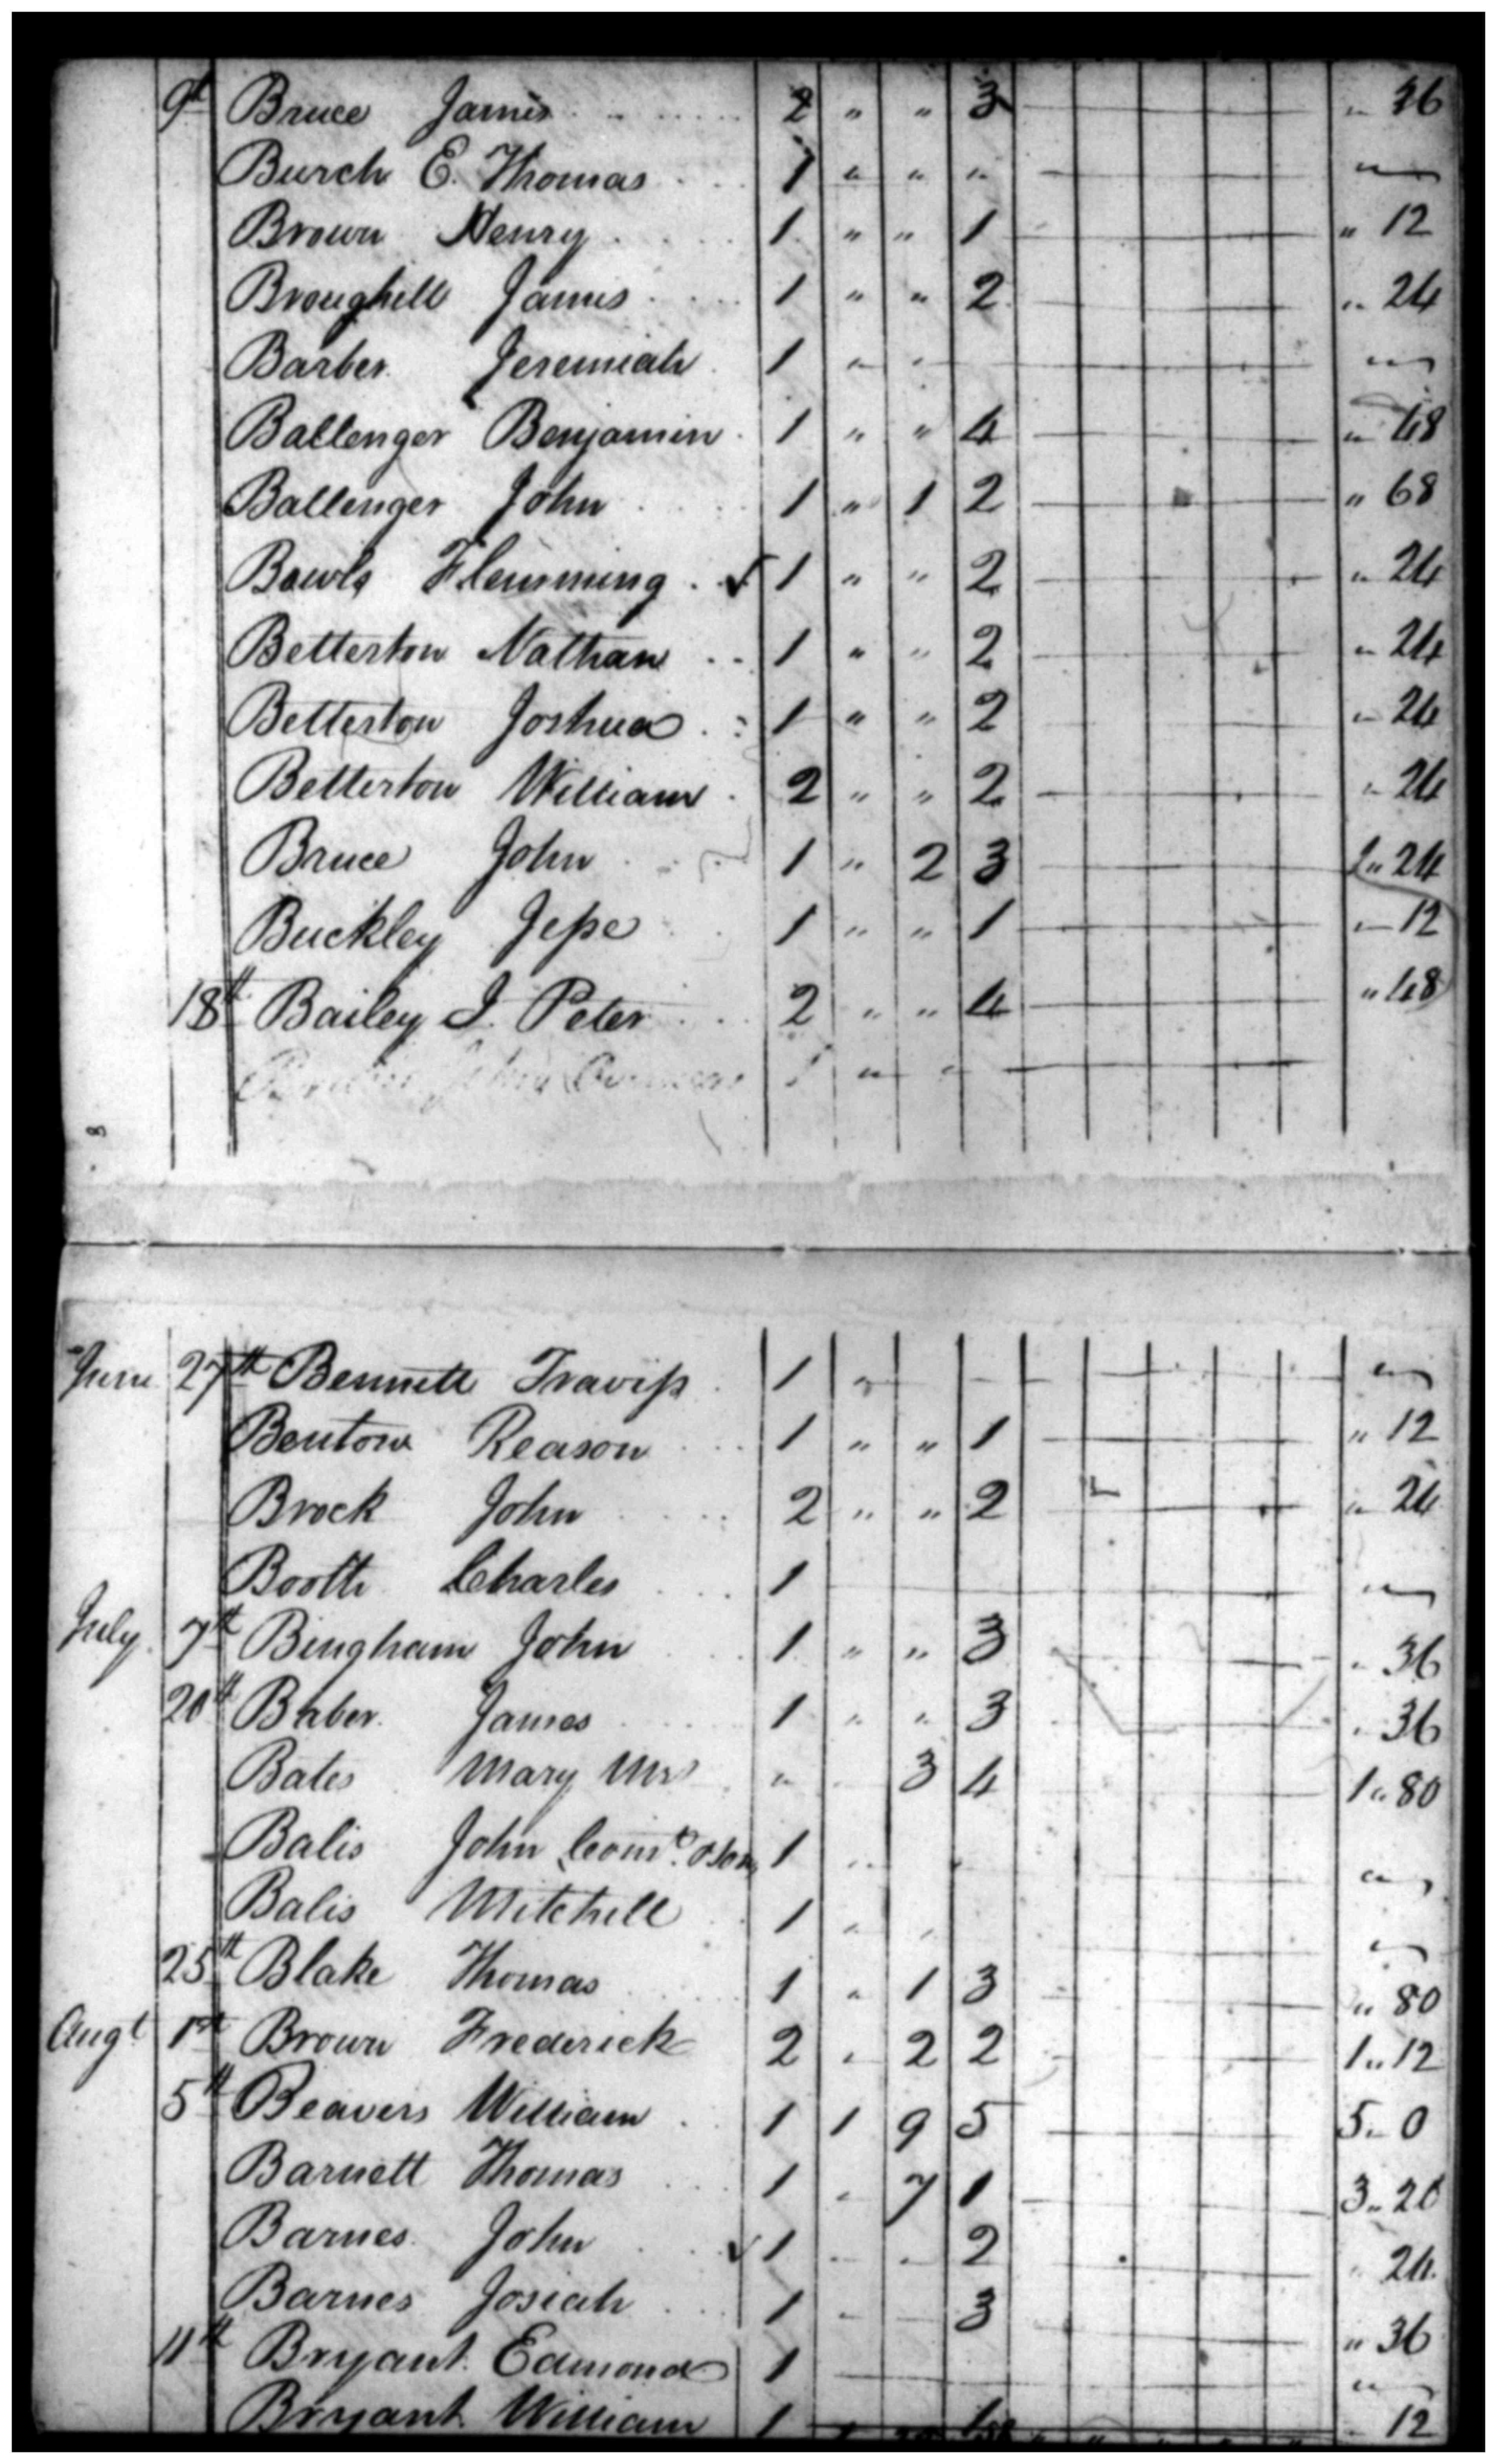 9th Bruce James 2 " " 3 " 36
Burch E. Thomas 1 " " "
Brown Henry 1 " " 1 " 12
Broughill James 1 " " 2 " 24
Barber Jeremiah 1 " "
Ballenger Benjamin 1 " " 4 " 48
Ballenger John 1 " 1 2 " 68
Bowls Flemming ✓ 1 " " 2 " 24
Betterton Nathan 1 " " 2 " 24
Betterton Joshua 1 " " 2 " 24
Betterton William 2 " " 2 " 24
Bruce John 1 " 2 3 1 " 24
Buckley Jesse 1 " " 1 " 12
18th Bailey J. Peter 2 " " 4 " 48
John 1 " "
8
June 27th Bennett Traviss 1 "
Benton Reason 1 " " 1 " 12
Brock John 2 " " 2 " 24
Booth Charles 1
July 7th Bingham John 1 " " 3 " 36
20th Baber James 1 " " 3 " 36
Bates Mary Mrs " " 3 4 1 " 80
Balis John 1 "
Balis Mitchell 1 " "
25th Blake Thomas 1 " 1 3 " 80
Augt 1st Brown Frederick 2 " 2 2 1 " 12
5th Beavers William 1 1 9 5 5 " 0
Barnett Thomas 1 " 7 1 3 " 20
Barnes John ✓ 1 " " 2 " 24
Barnes Josiah 1 " " 3 " 36
11th Bryant Edmond 1
Bryant William 1 12